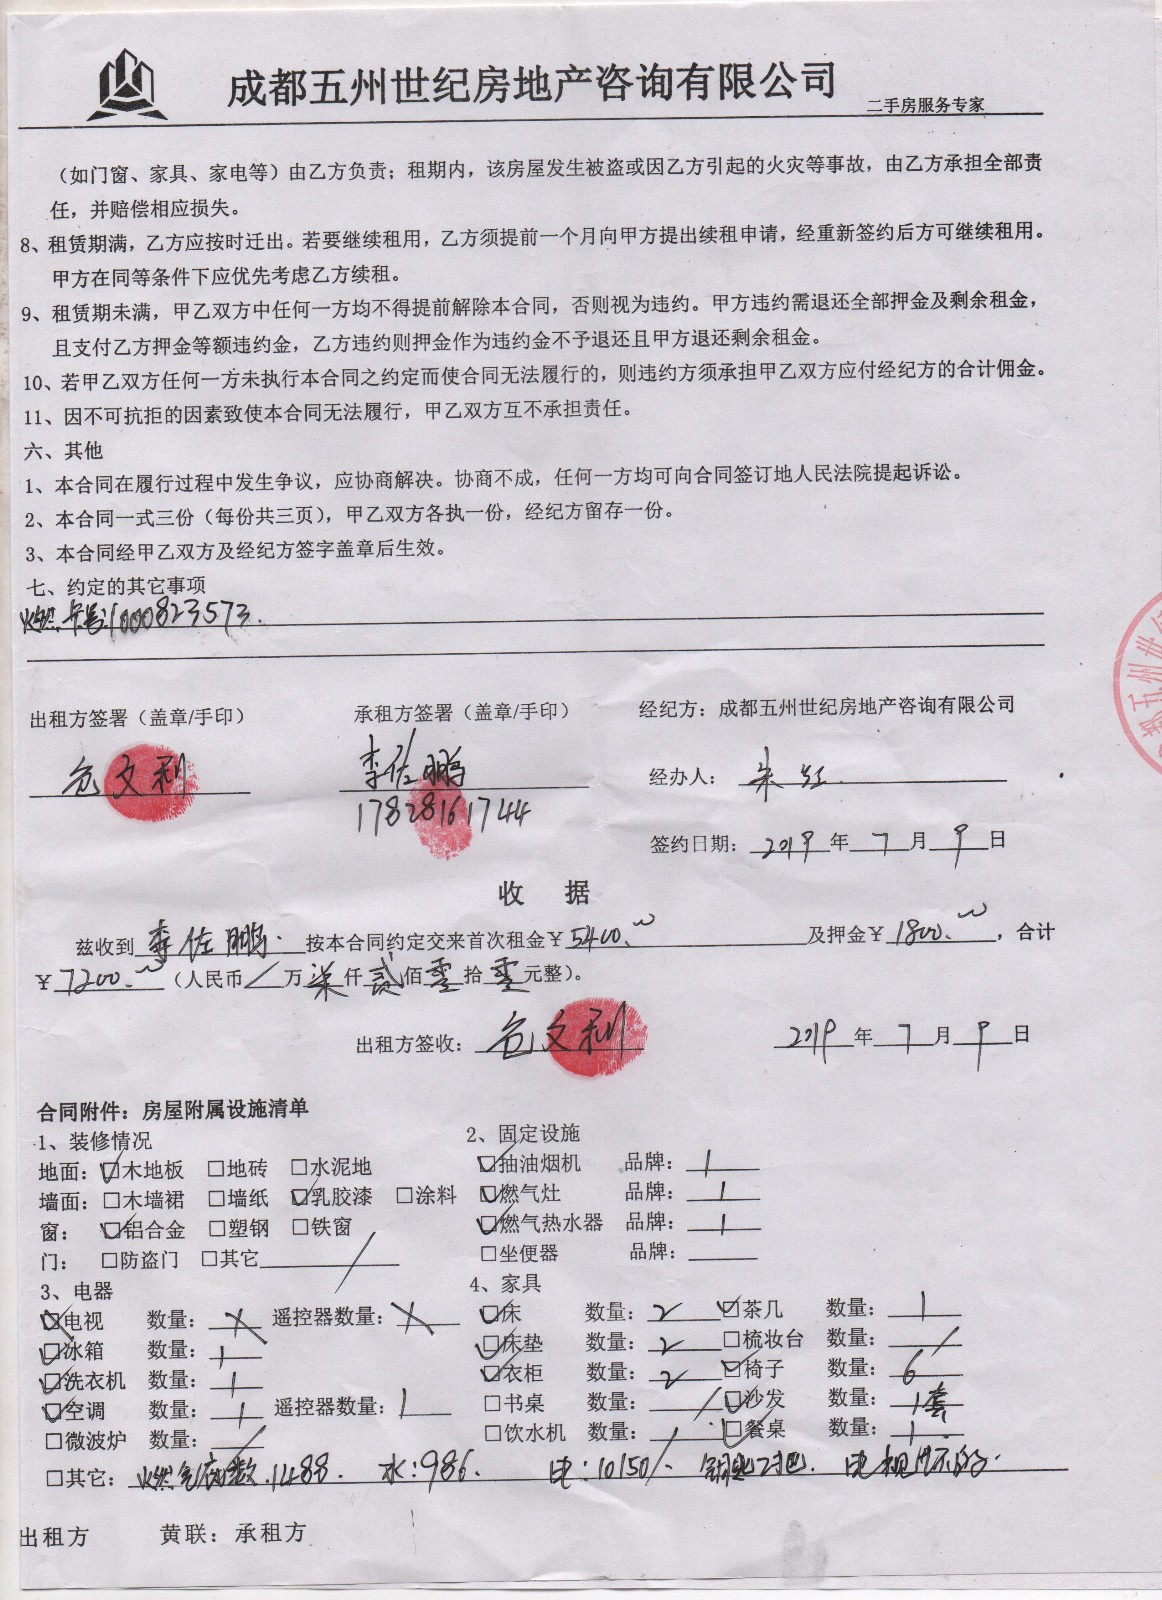 成都五州世纪房地产咨询有限公司
二手房服务专家
（如门窗、家具、家电等）由乙方负责；租期内，该房屋发生被盗或因乙方引起的火灾等事故，由乙方承担全部责
任，并赔偿相应损失。
8、租赁期满，乙方应按时迁出。若要继续租用，乙方须提前一个月向甲方提出续租申请，经重新签约后方可继续租用。
甲方在同等条件下应优先考虑乙方续租。
9、租赁期未满，甲乙双方中任何一方均不得提前解除本合同，否则视为违约。甲方违约需退还全部押金及剩余租金，
且支付乙方押金等额违约金，乙方违约则押金作为违约金不予退还且甲方退还剩余租金。
10、若甲乙双方任何一方未执行本合同之约定而使合同无法履行的，则违约方须承担甲乙双方应付经纪方的合计佣金。
11、因不可抗拒的因素致使本合同无法履行，甲乙双方互不承担责任。
六、其他
1、本合同在履行过程中发生争议，应协商解决。协商不成，任何一方均可向合同签订地人民法院提起诉讼。
2、本合同一式三份（每份共三页），甲乙双方各执一份，经纪方留存一份。
3、本合同经甲乙双方及经纪方签字盖章后生效。
七、约定的其它事项
燃卡号:1000823573.
五州世
出租方签署（盖章/手印） 承租方签署（盖章/手印） 经纪方：成都五州世纪房地产咨询有限公司
包文利 李佐鹏 经办人：朱红
17828161744
签约日期：2019年7月9日
收 据
兹收到李佐鹏.按本合同约定交来首次租金￥5400.00及押金￥1800.00，合计
￥7200.00（人民币/万柒仟贰佰零拾零元整）。
出租方签收：包文利 2019年7月9日
合同附件：房屋附属设施清单
1、装修情况 2、固定设施
地面：☑木地板 □地砖 □水泥地 ☑抽油烟机 品牌：1
墙面：□木墙裙 □墙纸 ☑乳胶漆 □涂料 ☑燃气灶 品牌：1
窗：☑铝合金 □塑钢 □铁窗 ☑燃气热水器 品牌：1
门：□防盗门 □其它/ □坐便器 品牌：
3、电器 4、家具
☑电视 数量： 遥控器数量： ☑床 数量：2 ☑茶几 数量：1
☑冰箱 数量：1 ☑床垫 数量：2 □梳妆台 数量：/
☑洗衣机 数量：1 ☑衣柜 数量：2 ☑椅子 数量：6
☑空调 数量：1 遥控器数量：1 □书桌 数量：/ ☑沙发 数量：1套
□微波炉 数量：/ □饮水机 数量：/ ☑餐桌 数量：1
□其它：燃气底数:1488. 水:986. 电:10150/. 钥匙2把. 电视坏的.
出租方 黄联：承租方